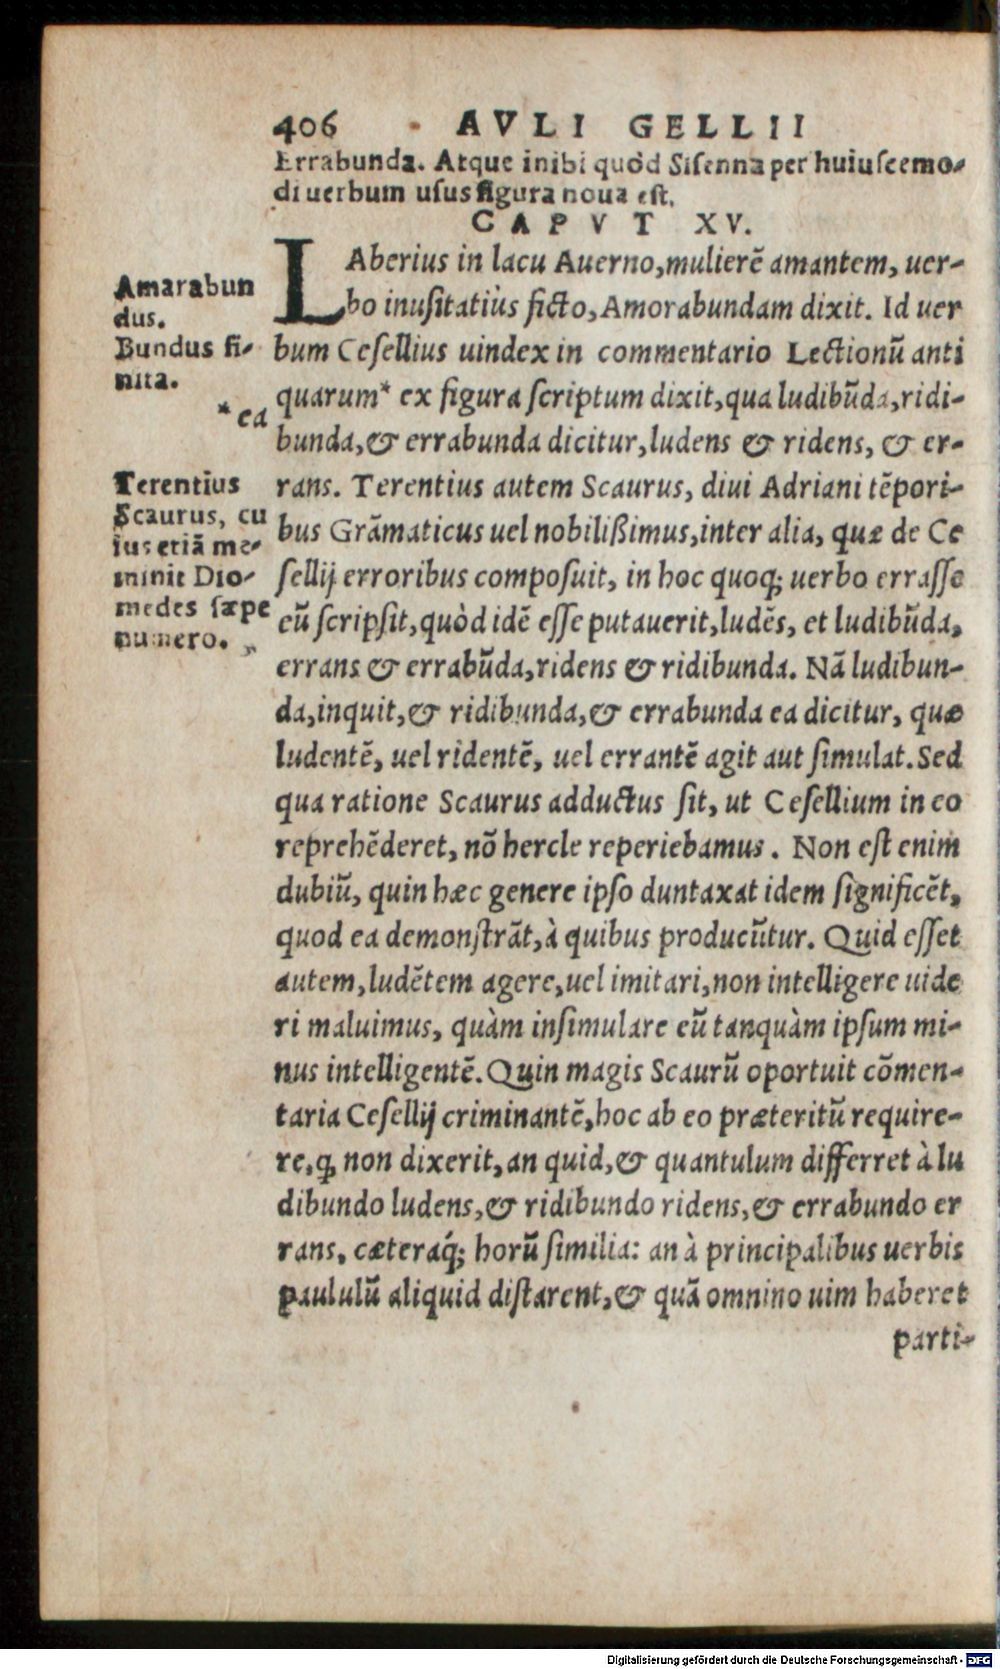 406 AVLI GELLII
Errabunda. Atque inibi quòd Sisenna per huiuscemo-
di uerbum usus figura noua est.
CAPVT XV.
LAberius in lacu Auerno, mulierē amantem, uer-
bo inusitatiùs ficto, Amorabundam dixit. Id uer
bum Cesellius uindex in commentario Lectionū anti
quarum* ex figura scriptum dixit, qua ludibūda, ridi-
bunda, & errabunda dicitur, ludens & ridens, & er-
rans. Terentius autem Scaurus, diui Adriani tēpori-
bus Grāmaticus uel nobilißimus, inter alia, quæ de Ce
sellij erroribus composuit, in hoc quoq; uerbo errasse
eū scripsit, quòd idē esse putauerit, ludēs, et ludibūda,
errans & errabūda, ridens & ridibunda. Nā ludibun-
da, inquit, & ridibunda, & errabunda ea dicitur, quæ
ludentē, uel ridentē, uel errantē agit aut simulat. Sed
qua ratione Scaurus adductus sit, ut Cesellium in eo
reprehēderet, nō hercle reperiebamus. Non est enim
dubiū, quin hæc genere ipso duntaxat idem significēt,
quod ea demonstrāt, à quibus producūtur. Quid esset
autem, ludētem agere, uel imitari, non intelligere uide
ri maluimus, quàm insimulare eū tanquàm ipsum mi-
nus intelligentē. Quin magis Scaurū oportuit cōmen-
taria Cesellij criminantē, hoc ab eo præteritū require-
re, q, non dixerit, an quid, & quantulum differret à lu
dibundo ludens, & ridibundo ridens, & errabundo er
rans, cæteraq́; horū similia: an à principalibus uerbis
paululū aliquid distarent, & quā omnino uim haberet
parti-
Amarabun
dus.
Bundus fi-
nita.
* ea
Terentius
Scaurus, cu
ius etiā me-
minit Dio-
medes sæpe
numero.
Digitalisierung gefördert durch die Deutsche Forschungsgemeinschaft - DFG